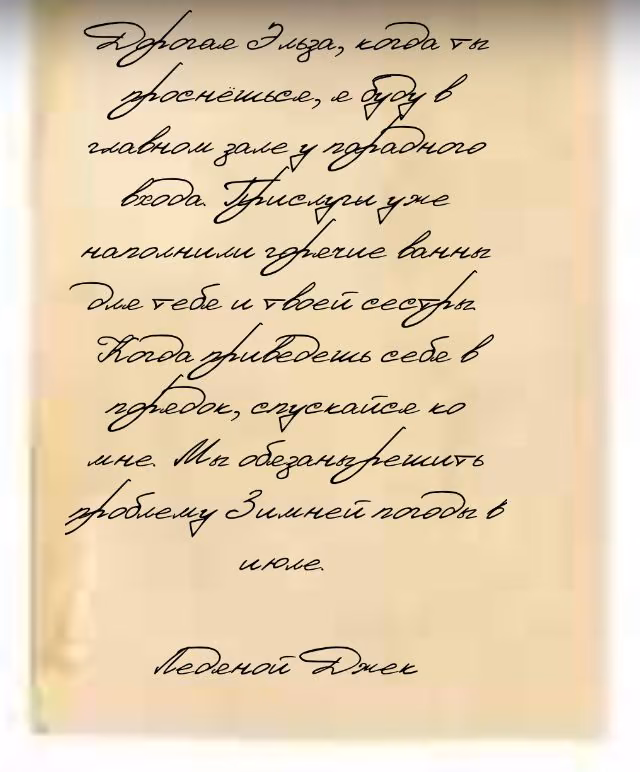 Дорогая Эльза, когда ты
проснёшься, я буду в
главном зале у парадного
входа. Прислуги уже
наполнили горячие ванны
для тебе и твоей сестры
Когда приведешь себе в
порядок, спускайся ко
мне. Мы обязаны решить
проблему Зимней погоды в
июле.
Ледяной Джек